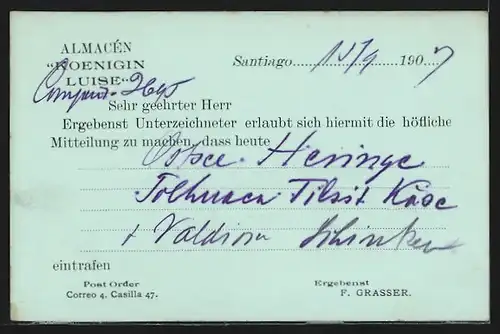 ALMACÉN
"KOENIGIN
LUISE"
Santiago 15/9 1907
Sehr geehrter Herr
Ergebenst Unterzeichneter erlaubt sich hiermit die höfliche
Mitteilung zu machen, dass heute
Ostsee Heringe
Tilsit Käse
+ Schinken
eintrafen
Post Order
Correo 4. Casilla 47.
Ergebenst
F. GRASSER.